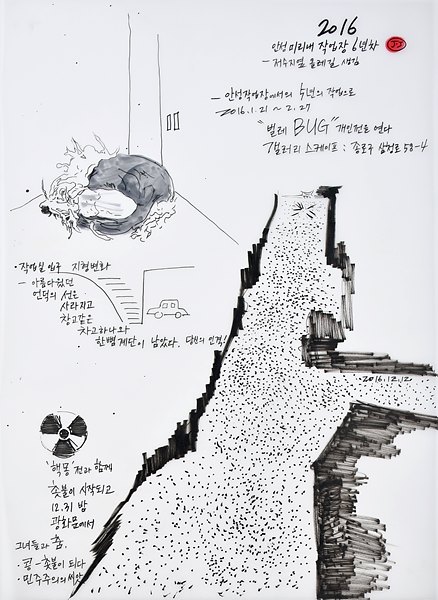 2016
안성 미리내 작업장 6년차
- 저수지옆 둘레길 생김
- 안성작업장에서의 5년의 작업으로
2016.1.21 ~ 2.27
"벌레 BUG" 개인전을 연다
갤러리 스케이프 : 종로구 삼청로 58-4
· 작업실 입구 지형변화
- 아름다웠던
언덕의 선은
사라지고
창고같은
차고하나와
한뼘 계단이 남았다.
2016.12.12
'핵몽'전과 함께
촛불이 시작되고
12.31 밤
광화문에서
그녀들과 춤.
· 꽃 - 촛불이 되다
· 민주주의의 씨앗